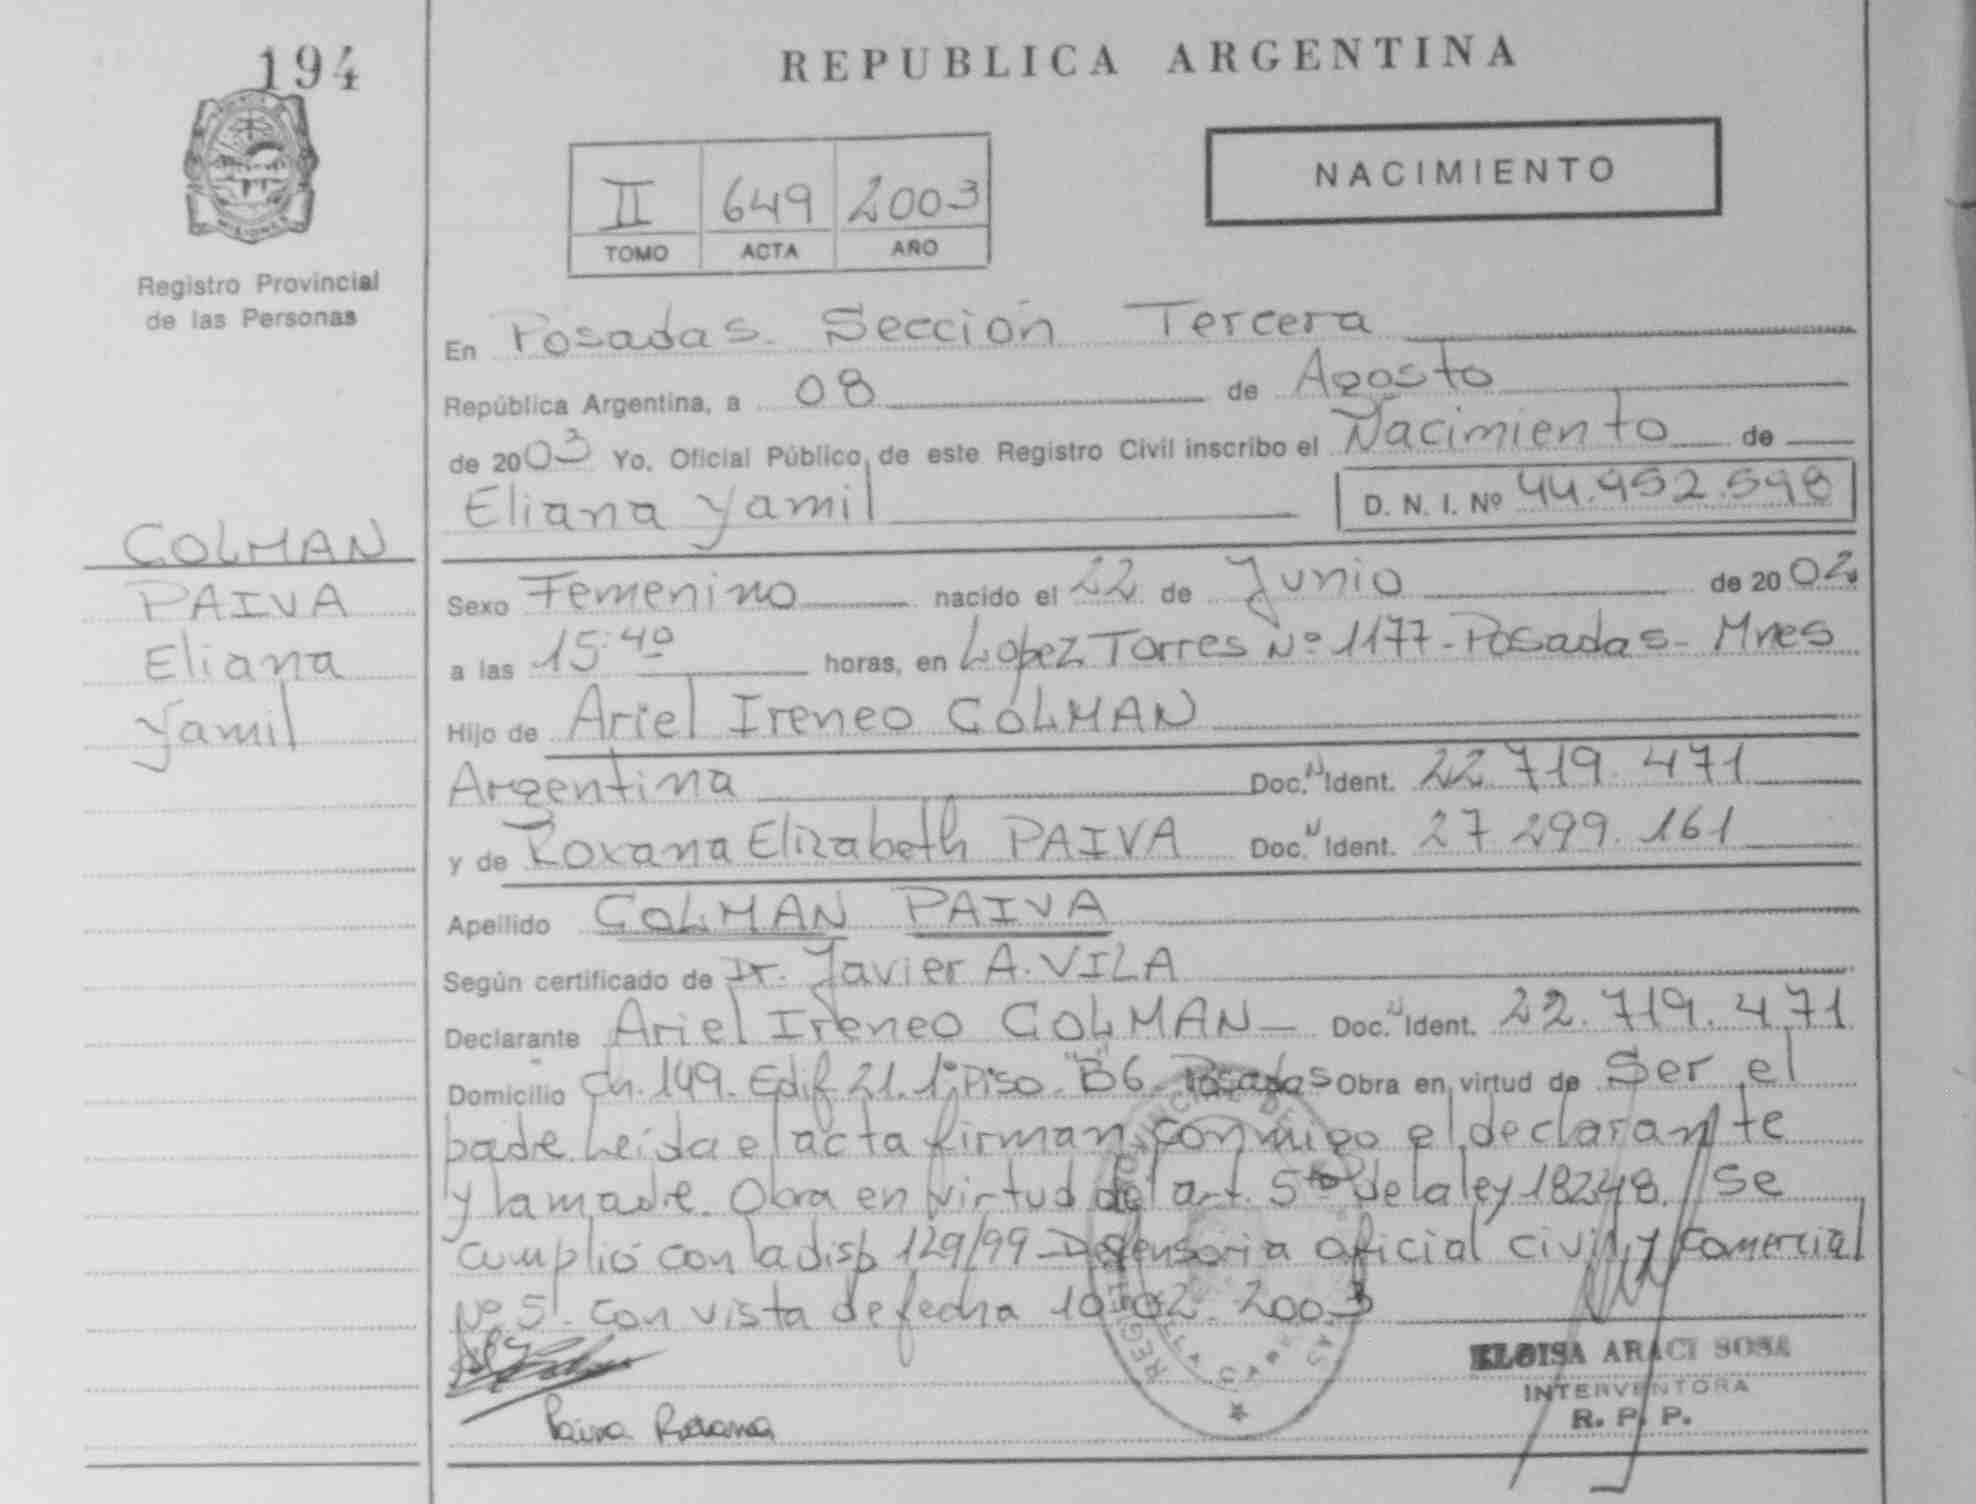 194
REPUBLICA ARGENTINA
NACIMIENTO
II 649 2003
TOMO ACTA AÑO
Registro Provincial
de las Personas
En Posadas. Sección Tercera
República Argentina, a 08 de Agosto
de 2003 Yo. Oficial Público, de este Registro Civil inscribo el Nacimiento de
Eliana Yamil D. N. I. Nº 44.952.598
COLMAN
PAIVA
Eliana
Yamil
Sexo Femenino nacido el 22 de Junio de 2002
a las 15:40 horas, en Lopez Torres Nº 1177-Posadas-Mnes
Hijo de Ariel Ireneo COLMAN
Argentina Doc. N Ident. 22.719.471
y de Roxana Elizabeth PAIVA Doc. N Ident. 27 299.161
Apellido COLMAN PAIVA
Según certificado de Dr. Javier A. VILA
Declarante Ariel Ireneo COLMAN Doc. N Ident. 22.719.471
Domicilio Ch. 149. Edif 21. 1º Piso "B" 6 Posadas Obra en virtud de Ser el
padre. Leída el acta firman conmigo el declarante
y la madre. Obra en virtud del art. 5to de la ley 18248. Se
cumplió con la disp 129/99 Defensoria oficial civil y comercial
Nº 5. con vista de fecha 10.02.2003
ELOISA ARACI SOSA
INTERVENTORA
R. P. P.
Paiva Roxana